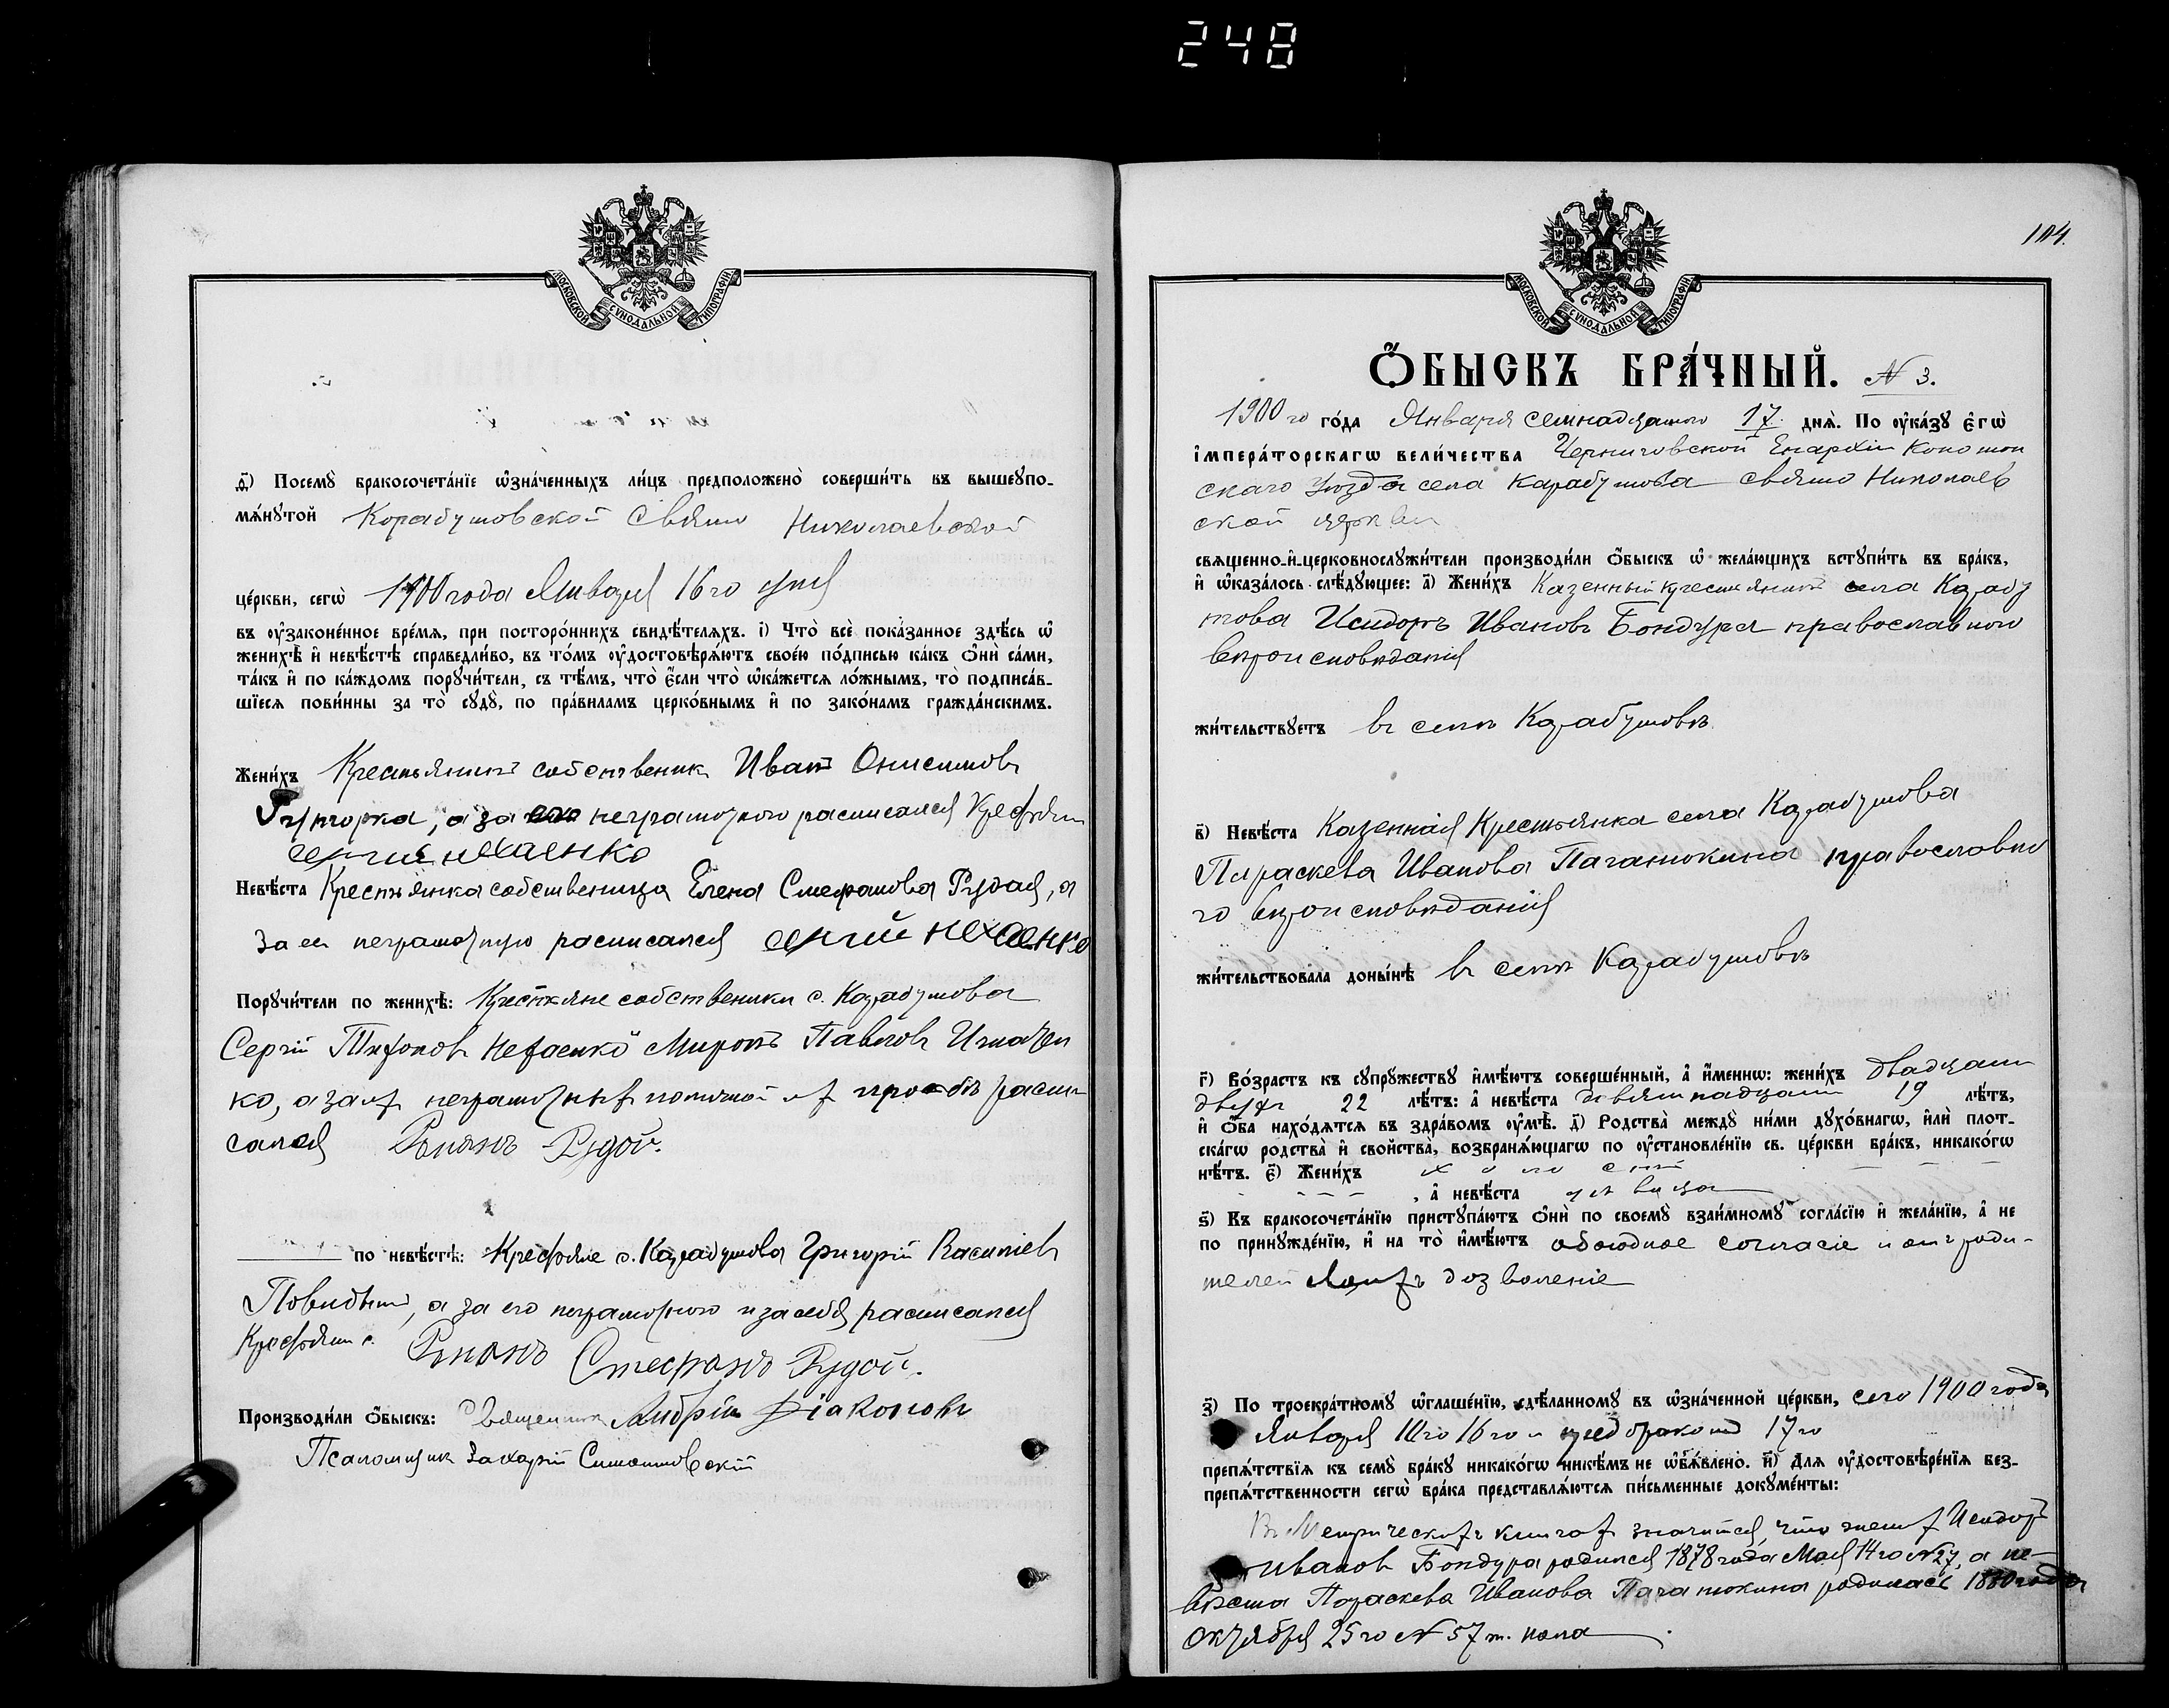 248
МОСКОВСКОЙ СѴНОДАЛЬНОЙ ТИПОГРАФІИ
ѳ҃) Посемꙋ̀ бракосочета́нїе ѡ҆зна́ченныхъ ли́цъ предположено̀ соверши́ть въ вышеꙋпо-
мѧ́нꙋтой Корабутовской Свято Николаевской
це́ркви, сегѡ̀ 1900 года Января 16го дня
въ ᲂу҆законе́нное вре́мѧ, при посторо́ннихъ свидѣ́телѧхъ. і҃) Что̀ всѐ пока́занное здѣ́сь ѡ҆
женихѣ̀ и҆ невѣ́стѣ справедли́во, въ то́мъ ᲂу҆достовѣрѧ́ютъ свое́ю по́дписью ка́къ ѻ҆нѝ са́ми,
та́къ и҆ по ка́ждомъ порꙋчи́тели, съ тѣ́мъ, что̀ є҆́сли что̀ ѡ҆ка́жетсѧ ло́жнымъ, то̀ подписа́в-
шїесѧ пови́нны за то̀ сꙋдꙋ̀, по пра́виламъ церко́внымъ и҆ по зако́намъ гражда́нскимъ.
Жени́хъ Крестьянинъ собственик Иван Онисимовъ
а за его неграмотного расписался Крестьян
Невѣ́ста Крестьянка собственица Елена Стефанова Рудая, а
за ея неграмотную расписался
Порꙋчи́тели по женихѣ̀: Крестьяне собственики с. Карабутова
Сергій Тихонов Нехаенко Миронъ Павлов Игнатен
ко, а за их неграмотных по их прозьбѣ распи
сался Романъ Рудой.
по невѣ́стѣ: Крестьяне с. Карабутова Григорій Василіев
а за его неграмотного и за себя расписался
Крестьянин с. Романъ Стефанъ Рудой.
Производи́ли ѻ҆́быскъ: Священник Андрій Діаконовъ
Псаломщик Захарій Симоновскій
104.
МОСКОВСКОЙ СѴНОДАЛЬНОЙ ТИПОГРАФІИ
Ѻ҆́БЫСКЪ БРА́ЧНЫЙ. № 3.
1900 го го́да Января семнадцатого 17. днѧ̀. По ᲂу҆ка́зꙋ є҆гѡ̀
і҆мпера́торскагѡ вели́чества Черниговской Епархіи Конотоп
скаго уѣзда села Карабутова Свято Николаев
ской церкви
свѧщенно-и҆-церковнослꙋжи́тели производи́ли ѻ҆́быскъ ѡ҆ жела́ющихъ встꙋпи́ть въ бра́къ,
и҆ ѡ҆каза́лось слѣ́дꙋющее: а҃) Жени́хъ Казенный крестьянинъ села Карабу
това Исидоръ Ивановъ Бондура православного
вѣроисповѣданія
жи́тельствꙋетъ въ селѣ Карабутовѣ.
в҃) Невѣ́ста Казенная Крестьянка села Карабутова
Параскева Иванова православно
го вѣроисповѣданія
жи́тельствовала доны́нѣ въ селѣ Карабутовѣ
г҃) Во́зрастъ къ сꙋпрꙋ́жествꙋ и҆мѣ́ютъ соверше́нный, а҆ и҆́меннѡ: жени́хъ двадцати
двухъ 22 лѣ́тъ: а҆ невѣ́ста девятнадцати 19 лѣ́тъ,
и҆ ѻ҆́ба нахо́дѧтсѧ въ здра́вомъ ᲂу҆мѣ̀. д҃) Родства̀ междꙋ̀ ни́ми дꙋхо́внагѡ, и҆лѝ плот-
ска́гѡ родства̀ и҆ свойства̀, возбранѧ́ющагѡ по ᲂу҆становле́нїю св. це́ркви бра́къ, никако́гѡ
нѣ́тъ. є҃) Жени́хъ холостъ
, а҆ невѣ́ста дѣвица
ѕ҃) Къ бракосочета́нїю пристꙋпа́ютъ ѻ҆нѝ по своемꙋ̀ взаи́мномꙋ согла́сїю и҆ жела́нїю, а҆ не
по принꙋжде́нїю, и҆ на то̀ и҆мѣ́ютъ обоюдное согласіе и отъ роди-
телей дозволеніе
з҃) По троекра́тномꙋ ѡ҆глаше́нїю, сдѣ́ланномꙋ въ ѡ҆зна́ченной це́ркви, сего 1900 года
Января 16го и пред браком 17го
препѧ́тствїѧ къ семꙋ̀ бра́кꙋ никако́гѡ никѣ́мъ не ѡ҆б̾ѧ́влено. и҃) Длѧ ᲂу҆достовѣре́нїѧ без-
препѧ́тственности сегѡ̀ бра́ка представлѧ́ютсѧ пи́сьменные докꙋме́нты:
Въ Метрических книгах значится, что жених Исидор
Иванов Бондура родился 1878 года Мая 14го №27, а не-
вѣста Параскева Иванова родилась 1880 года
Октября 25го № 57 ж. пола